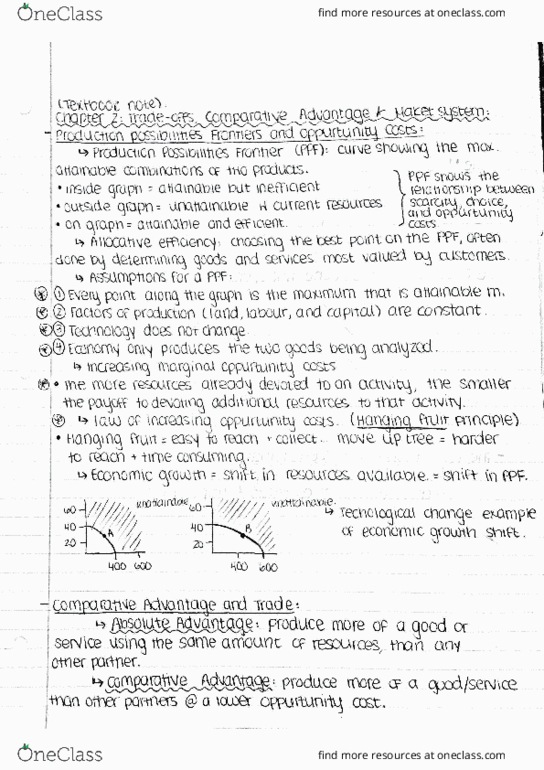 OneClass
find more resources at oneclass.com
(Textbook note).
Chapter 2: Trade-offs, Comparative Advantage & Market System:
- Production Possibilities Frontiers and Oppurtunity Costs:
↳ Production Possibilities Frontier (PPF): curve showing the max.
attainable combinations of two products.
• inside graph = attainable but inefficient
• outside graph = unattainable w current resources
• on graph = attainable and efficient.
PPF shows the
relationship between
scarcity, choice,
and oppurtunity
costs.
↳ Allocative efficiency: choosing the best point on the PPF, often
done by determining goods and services most valued by customers.
↳ Assumptions for a PPF:
① Every point along the graph is the maximum that is attainable
② Factors of production (land, labour, and capital) are constant.
③ Technology does not change.
④ Economy only produces the two goods being analyzed.
↳ Increasing marginal oppurtunity costs
• The more resources already devoted to an activity, the smaller
the payoff to devoting additional resources to that activity.
↳ Law of increasing oppurtunity costs. (Hanging Fruit Principle)
• Hanging fruit = easy to reach + collect. move up tree = harder
to reach + time consuming.
↳ Economic growth = shift in resources available. = shift in PPF.
60
40
20
A
400 600
unattainable
60
40
20
B
400 600
unattainable.
↳ Tecnological change example
of economic growth shift.
- Comparative Advantage and Trade:
↳ Absolute Advantage: produce more of a good or
service using the same amount of resources, than any
other partner.
↳ Comparative Advantage: produce more of a good/service
than other partners @ a lower oppurtunity cost.
OneClass
find more resources at oneclass.com